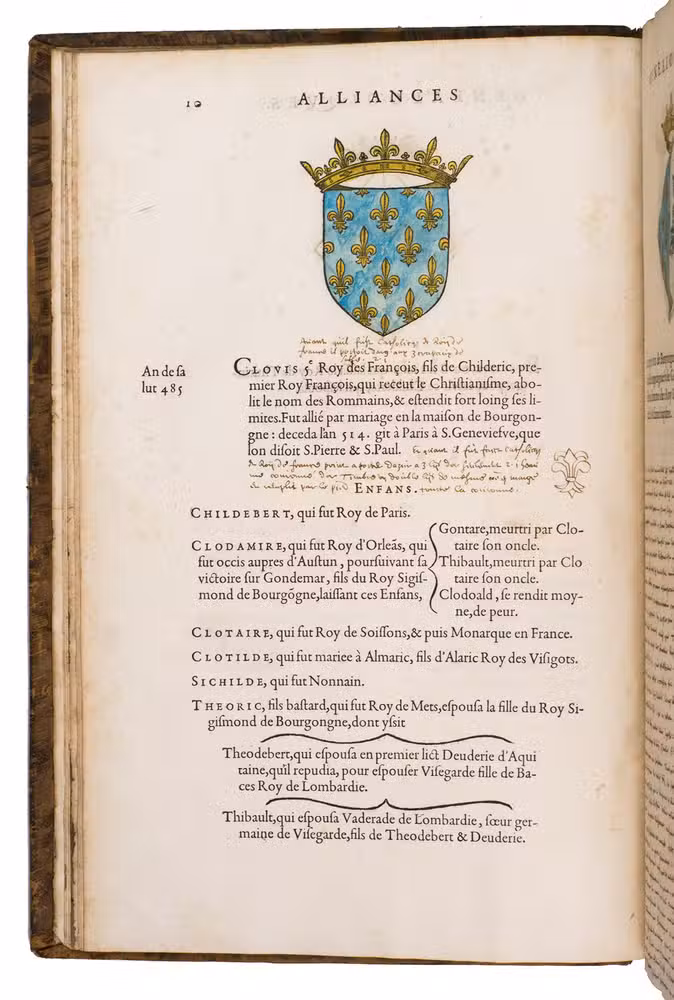 10
ALLIANCES
An de sa
lut 485
CLOVIS 5e Roy des François, fils de Childeric, pre-
mier Roy François, qui receut le Christianisme, abo-
lit le nom des Rommains, & estendit fort loing ses li-
mites. Fut allié par mariage en la maison de Bourgon-
gne : deceda l'an 514. git à Paris à S. Geneviefve, que
lon disoit S. Pierre & S. Paul.
ENFANS.
CHILDEBERT, qui fut Roy de Paris.
CLODAMIRE, qui fut Roy d'Orleãs, qui
fut occis aupres d'Austun, poursuivant sa
victoire sur Gondemar, fils du Roy Sigis-
mond de Bourgõgne, laissant ces Enfans,
Gontare, meurtri par Clo-
taire son oncle.
Thibault, meurtri par Clo
taire son oncle.
Clodoald, se rendit moy-
ne, de peur.
CLOTAIRE, qui fut Roy de Soissons, & puis Monarque en France.
CLOTILDE, qui fut mariee à Almaric, fils d'Alaric Roy des Visigots.
SICHILDE, qui fut Nonnain.
THEORIC, fils bastard, qui fut Roy de Mets, espousa la fille du Roy Si-
gismond de Bourgongne, dont yssit
Theodebert, qui espousa en premier lict Deuderie d'Aqui
taine, qu'il repudia, pour espouser Visegarde fille de Ba-
ces Roy de Lombardie.
Thibault, qui espousa Vaderade de Lombardie, sœur ger-
maine de Visegarde, fils de Theodebert & Deuderie.